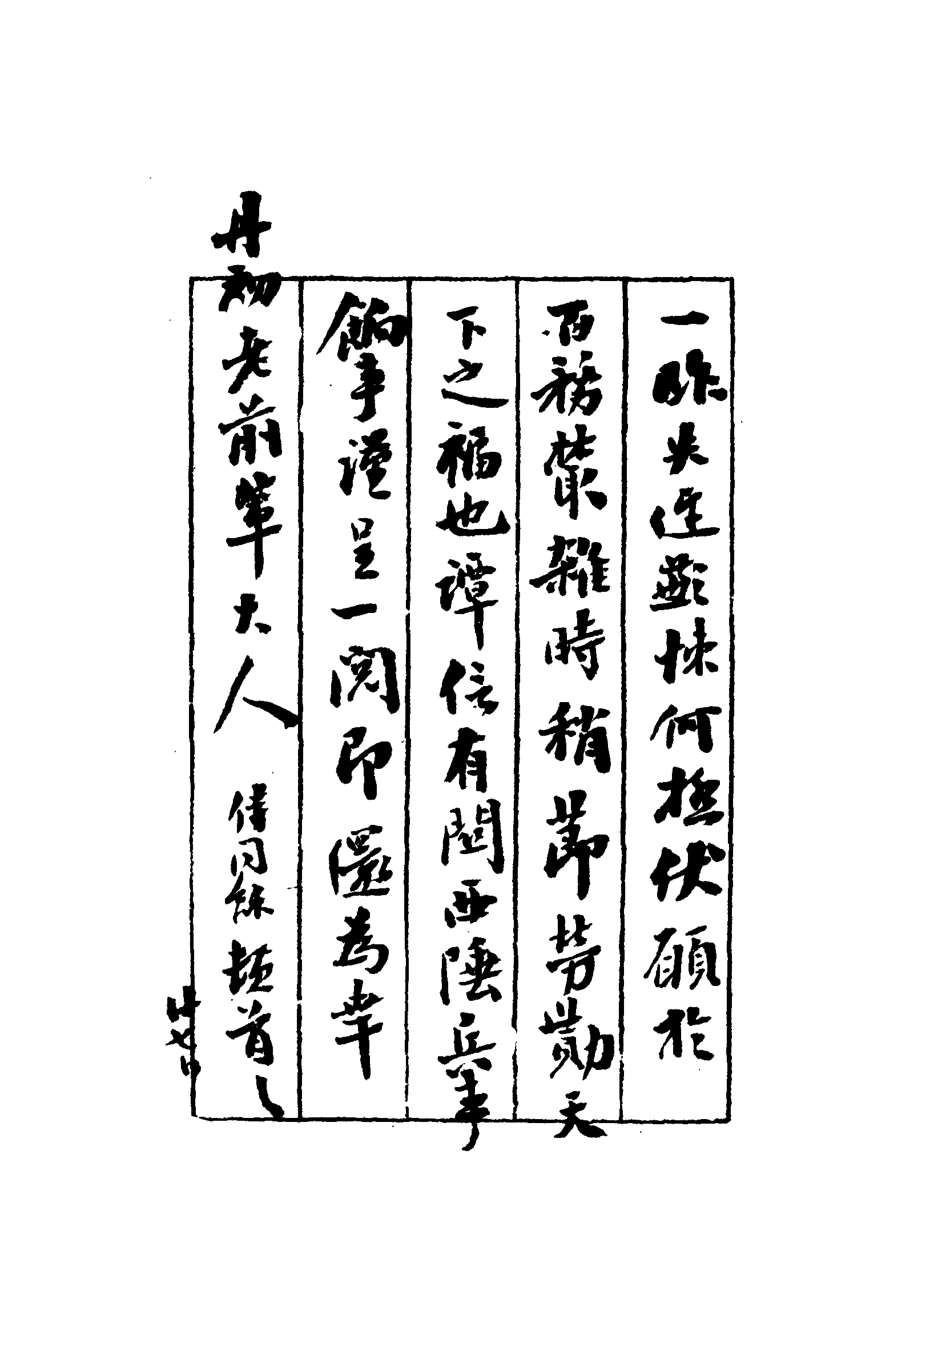 一昨失迓歉悚何極伏願於
百務叢雜時稍節勞勩天
下之福也譚信有關西陲兵事
餉事謹呈一閱即還為幸
丹初老前輩大人 侍同龢頓首〻
廿七日